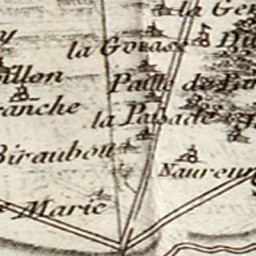 la Gen
la Gouasse
Du
llon
Paille de
anche
la Papade
Biraubou
Naureun
Marie